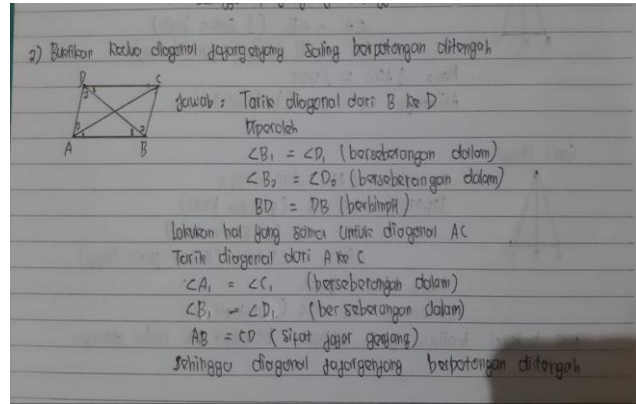 2) Buktikan kedua diagonal jajargenjang saling berpotongan ditengah
D C
Jawab : Tarik diagonal dari B ke D
A B
Diperoleh
∠B₁ = ∠D₁ (berseberangan dalam)
∠B₂ = ∠D₂ (berseberangan dalam)
BD = DB (berhimpit)
Lakukan hal yang sama untuk diagonal AC
Tarik diagonal dari A ke C
∠A₁ = ∠C₁ (berseberangan dalam)
∠B₁ = ∠D₁ (berseberangan dalam)
AB = CD (sifat jajar genjang)
Sehingga diagonal jajargenjang berpotongan ditengah